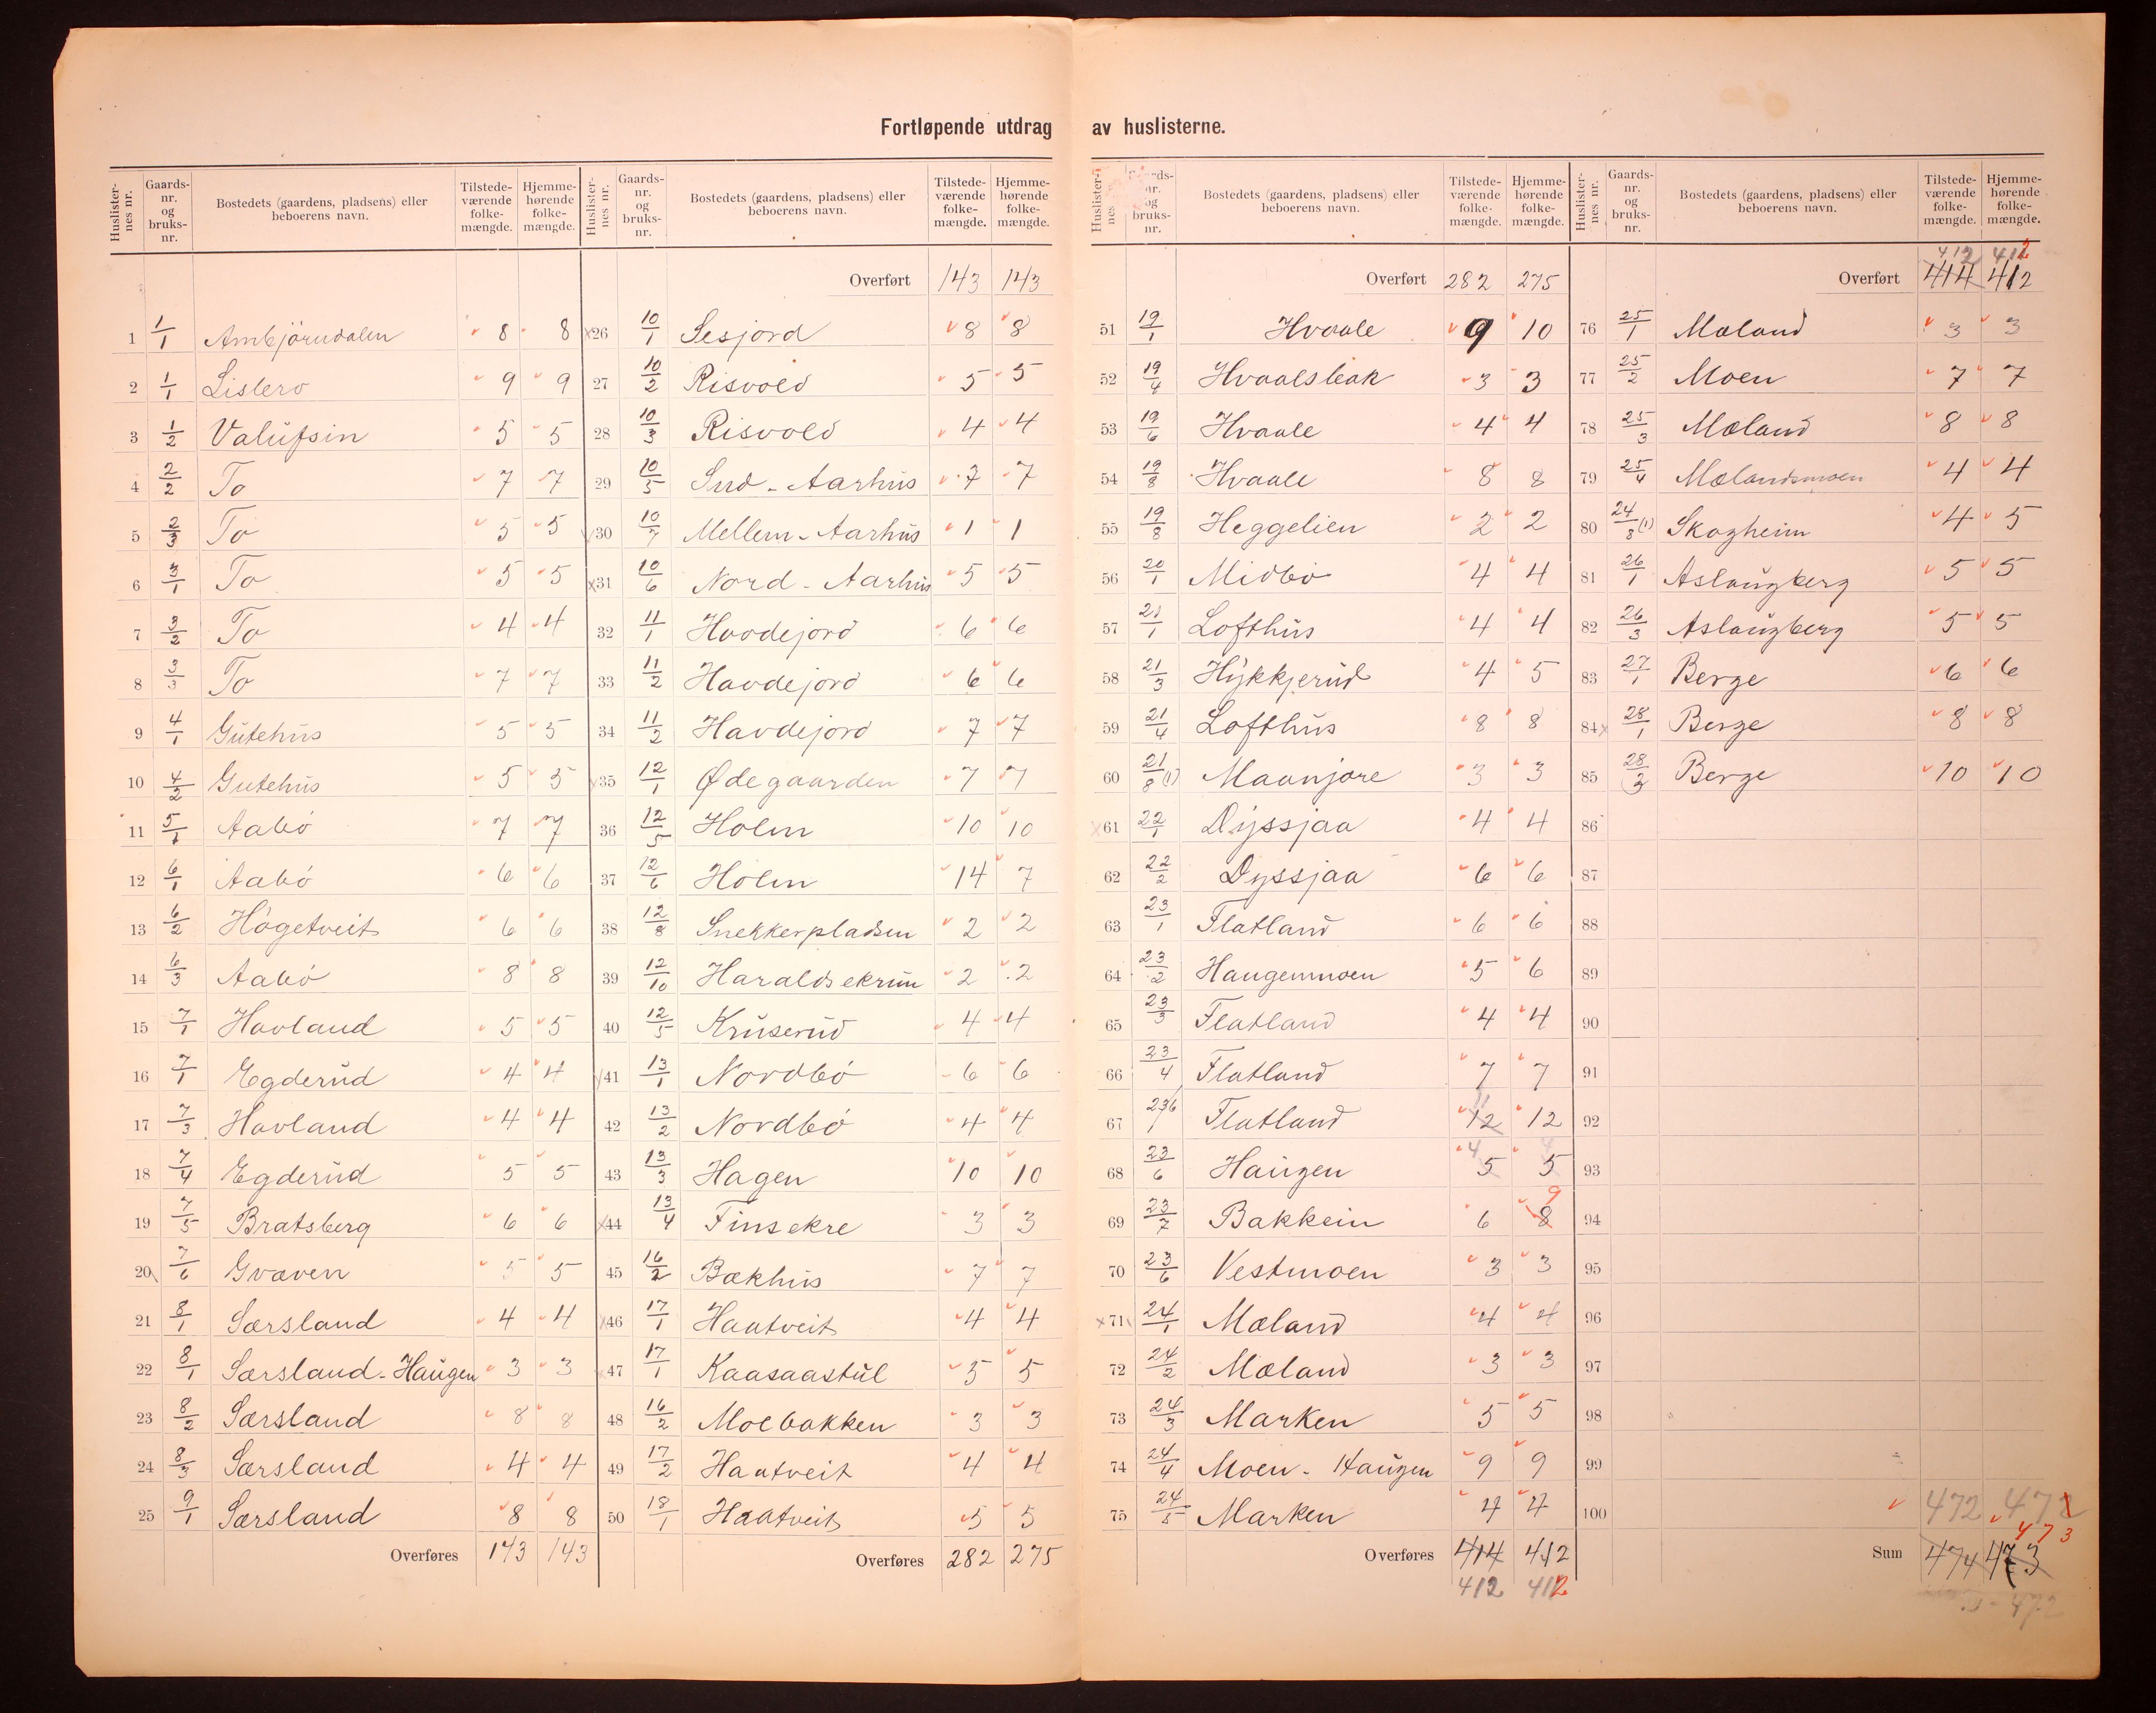 Fortløpende utdrag av huslisterne.
Huslisternes nr. Gaards-nr. og bruks-nr. Bostedets (gaardens, pladsens) eller beboerens navn. Tilstedeværende folkemængde. Hjemmehørende folkemængde.
1 1/1 Ambjörndalen 8 8
2 1/1 Listero 9 9
3 1/2 Valufsin 5 5
4 2/2 To 7 7
5 2/3 To 5 5
6 3/1 To 5 5
7 3/2 To 4 4
8 3/3 To 7 7
9 4/1 Gutehus 5 5
10 4/2 Gutehus 5 5
11 5/1 Aabö 7 7
12 6/1 Aabö 6 6
13 6/2 Högetveit 6 6
14 6/3 Aabö 8 8
15 7/1 Havland 5 5
16 7/1 Egderud 4 4
17 7/3 Havland 4 4
18 7/4 Egderud 5 5
19 7/5 Bratsberg 6 6
20 7/6 Gvæven 5 5
21 8/1 Særsland 4 4
22 8/1 Særsland-Haugen 3 3
23 8/2 Særsland 8 8
24 8/3 Særsland 4 4
25 9/1 Særsland 8 8
Overføres 143 143
Huslisternes nr. Gaards-nr. og bruks-nr. Bostedets (gaardens, pladsens) eller beboerens navn. Tilstedeværende folkemængde. Hjemmehørende folkemængde.
Overført 143 143
x26 10/1 Sesjord 8 8
27 10/2 Risvold 5 5
28 10/3 Risvold 4 4
29 10/5 Sud-Aarhus 7 7
30 10/7 Mellem-Aarhus 1 1
x31 10/6 Nord-Aarhus 5 5
32 11/1 Havdejord 6 6
33 11/2 Havdejord 6 6
34 11/2 Havdejord 7 7
35 12/1 Ødegaarden 7 7
36 12/5 Holm 10 10
37 12/6 Holm 14 7
38 12/8 Snekkerpladsen 2 2
39 12/10 Haraldsekrun 2 2
40 12/5 Kruserud 4 4
41 13/1 Nordbö 6 6
42 13/2 Nordbö 4 4
43 13/3 Hagen 10 10
x44 13/4 Finsekre 3 3
45 16/2 Bækhus 7 7
x46 17/1 Haatveit 4 4
47 17/1 Kaasaastul 5 5
48 16/2 Moebakken 3 3
49 17/2 Haatveit 4 4
50 18/1 Haatveit 5 5
Overføres 282 275
Huslisternes Gaards-nr. og bruks-nr. Bostedets (gaardens, pladsens) eller beboerens navn. Tilstedeværende folkemængde. Hjemmehørende folkemængde.
Overført 282 275
51 19/1 Hvaale 9 10
52 19/4 Hvaalsleak 3 3
53 19/6 Hvaale 4 4
54 19/8 Hvaale 8 8
55 19/8 Heggelien 2 2
56 20/1 Midbö 4 4
57 21/1 Lofthus 4 4
58 21/3 Hykkjerud 4 5
59 21/4 Lofthus 8 8
60 21/8 (1) Maanjore 3 3
x61 22/1 Dyssjaa 4 4
62 22/2 Dyssjaa 6 6
63 23/1 Flatland 6 6
64 23/2 Haugenmoen 5 6
65 23/3 Flatland 4 4
66 23/4 Flatland 7 7
67 Flatland 12 11 12
68 23/6 Haugen 4 5 4 5
69 23/7 Bakkein 6 8 9
70 23/6 Vestmoen 3 3
x71 24/1 Mæland 4 4
72 24/2 Mæland 3 3
73 24/3 Marken 5 5
74 24/4 Moen-Haugen 9 9
75 24/5 Marken 4 4
Overføres 414 412
412 412
Huslisternes nr. Gaards-nr. og bruks-nr. Bostedets (gaardens, pladsens) eller beboerens navn. Tilstedeværende folkemængde. Hjemmehørende folkemængde.
412 412
Overført 414 412
76 25/1 Mæland 3 3
77 25/2 Moen 7 7
78 25/3 Mæland 8 8
79 25/4 Mælandsmoen 4 4
80 24/8 (1) Skogheim 4 5
81 26/1 Aslaugberg 5 5
82 26/3 Aslaugberg 5 5
83 27/1 Berge 6 6
84x 28/1 Berge 8 8
85 28/3 Berge 10 10
86
87
88
89
90
91
92
93
94
95
96
97
98
99
100 472 472
473
Sum 474 473
472